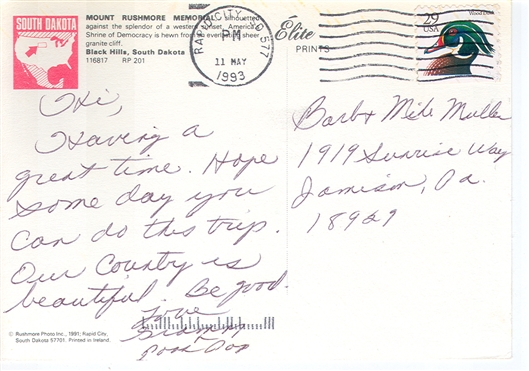 SOUTH DAKOTA
MOUNT RUSHMORE MEMORIAL, silhouetted
against the splendor of a western sunset, America's
Shrine of Democracy is hewn from an everlasting sheer
granite cliff.
Black Hills, South Dakota
116817 RP 201
Elite
PRINTS
RAPID CITY, SD 577
PM
11 MAY
1993
29
USA
Wood Duck
Hi,
Having a
great time. Hope
some day you
can do this trip.
Our County is
beautiful. Be good.
Love
Grammy
Poor Pop
Barb + Mike Muller
1919 Sunrise Way
Jamison, Pa.
18929
© Rushmore Photo Inc., 1991; Rapid City,
South Dakota 57701. Printed in Ireland.